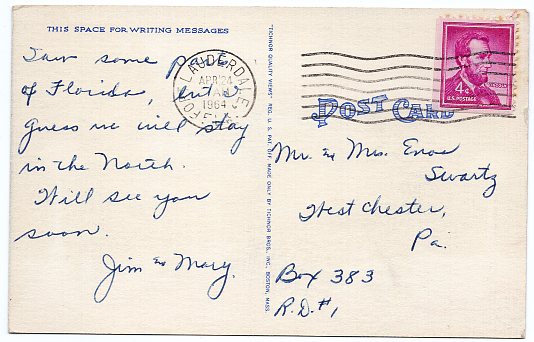 THIS SPACE FOR WRITING MESSAGES
Saw some
of Florida, but I
guess we will stay
in the North.
Will see you
soon.
Jim & Mary.
TICHNOR QUALITY VIEWS, REG. U. S. PAT. OFF. MADE ONLY BY TICHNOR BROS., INC., BOSTON, MASS.
FORT LAUDERDALE, FLA.
APR 24
AM
1964
4¢
U.S. POSTAGE
POST CARD
Mr. & Mrs. Enos
Swartz
West Chester,
Pa.
Box 383
R.D. #1